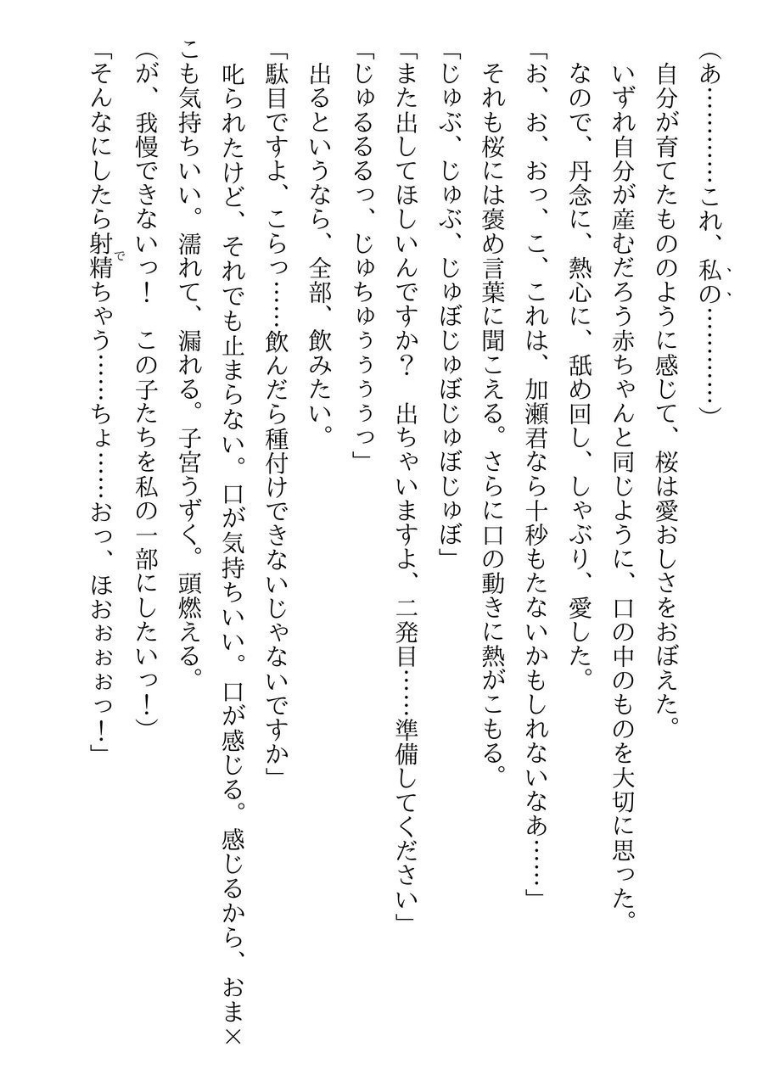 (あ…………これ、私の…………)
自分が育てたもののように感じて、桜は愛おしさをおぼえた。
いずれ自分が産むだろう赤ちゃんと同じように、口の中のものを大切に思った。
なので、丹念に、熱心に、舐め回し、しゃぶり、愛した。
「お、お、おっ、こ、これは、加瀬君なら十秒もたないかもしれないなあ……」
それも桜には褒め言葉に聞こえる。さらに口の動きに熱がこもる。
「じゅぶ、じゅぶ、じゅぼじゅぼじゅぼじゅぼ」
「また出してほしいんですか? 出ちゃいますよ、二発目……準備してください」
「じゅるるるっ、じゅちゅぅぅぅぅっ」
出るというなら、全部、飲みたい。
「駄目ですよ、こらっ……飲んだら種付けできないじゃないですか」
叱られたけど、それでも止まらない。口が気持ちいい。口が感じる。感じるから、おま×
こも気持ちいい。濡れて、漏れる。子宮うずく。頭燃える。
(が、我慢できないっ! この子たちを私の一部にしたいっ!)
「そんなにしたら射精でちゃう……ちょ……おっ、ほおぉぉぉっ!」